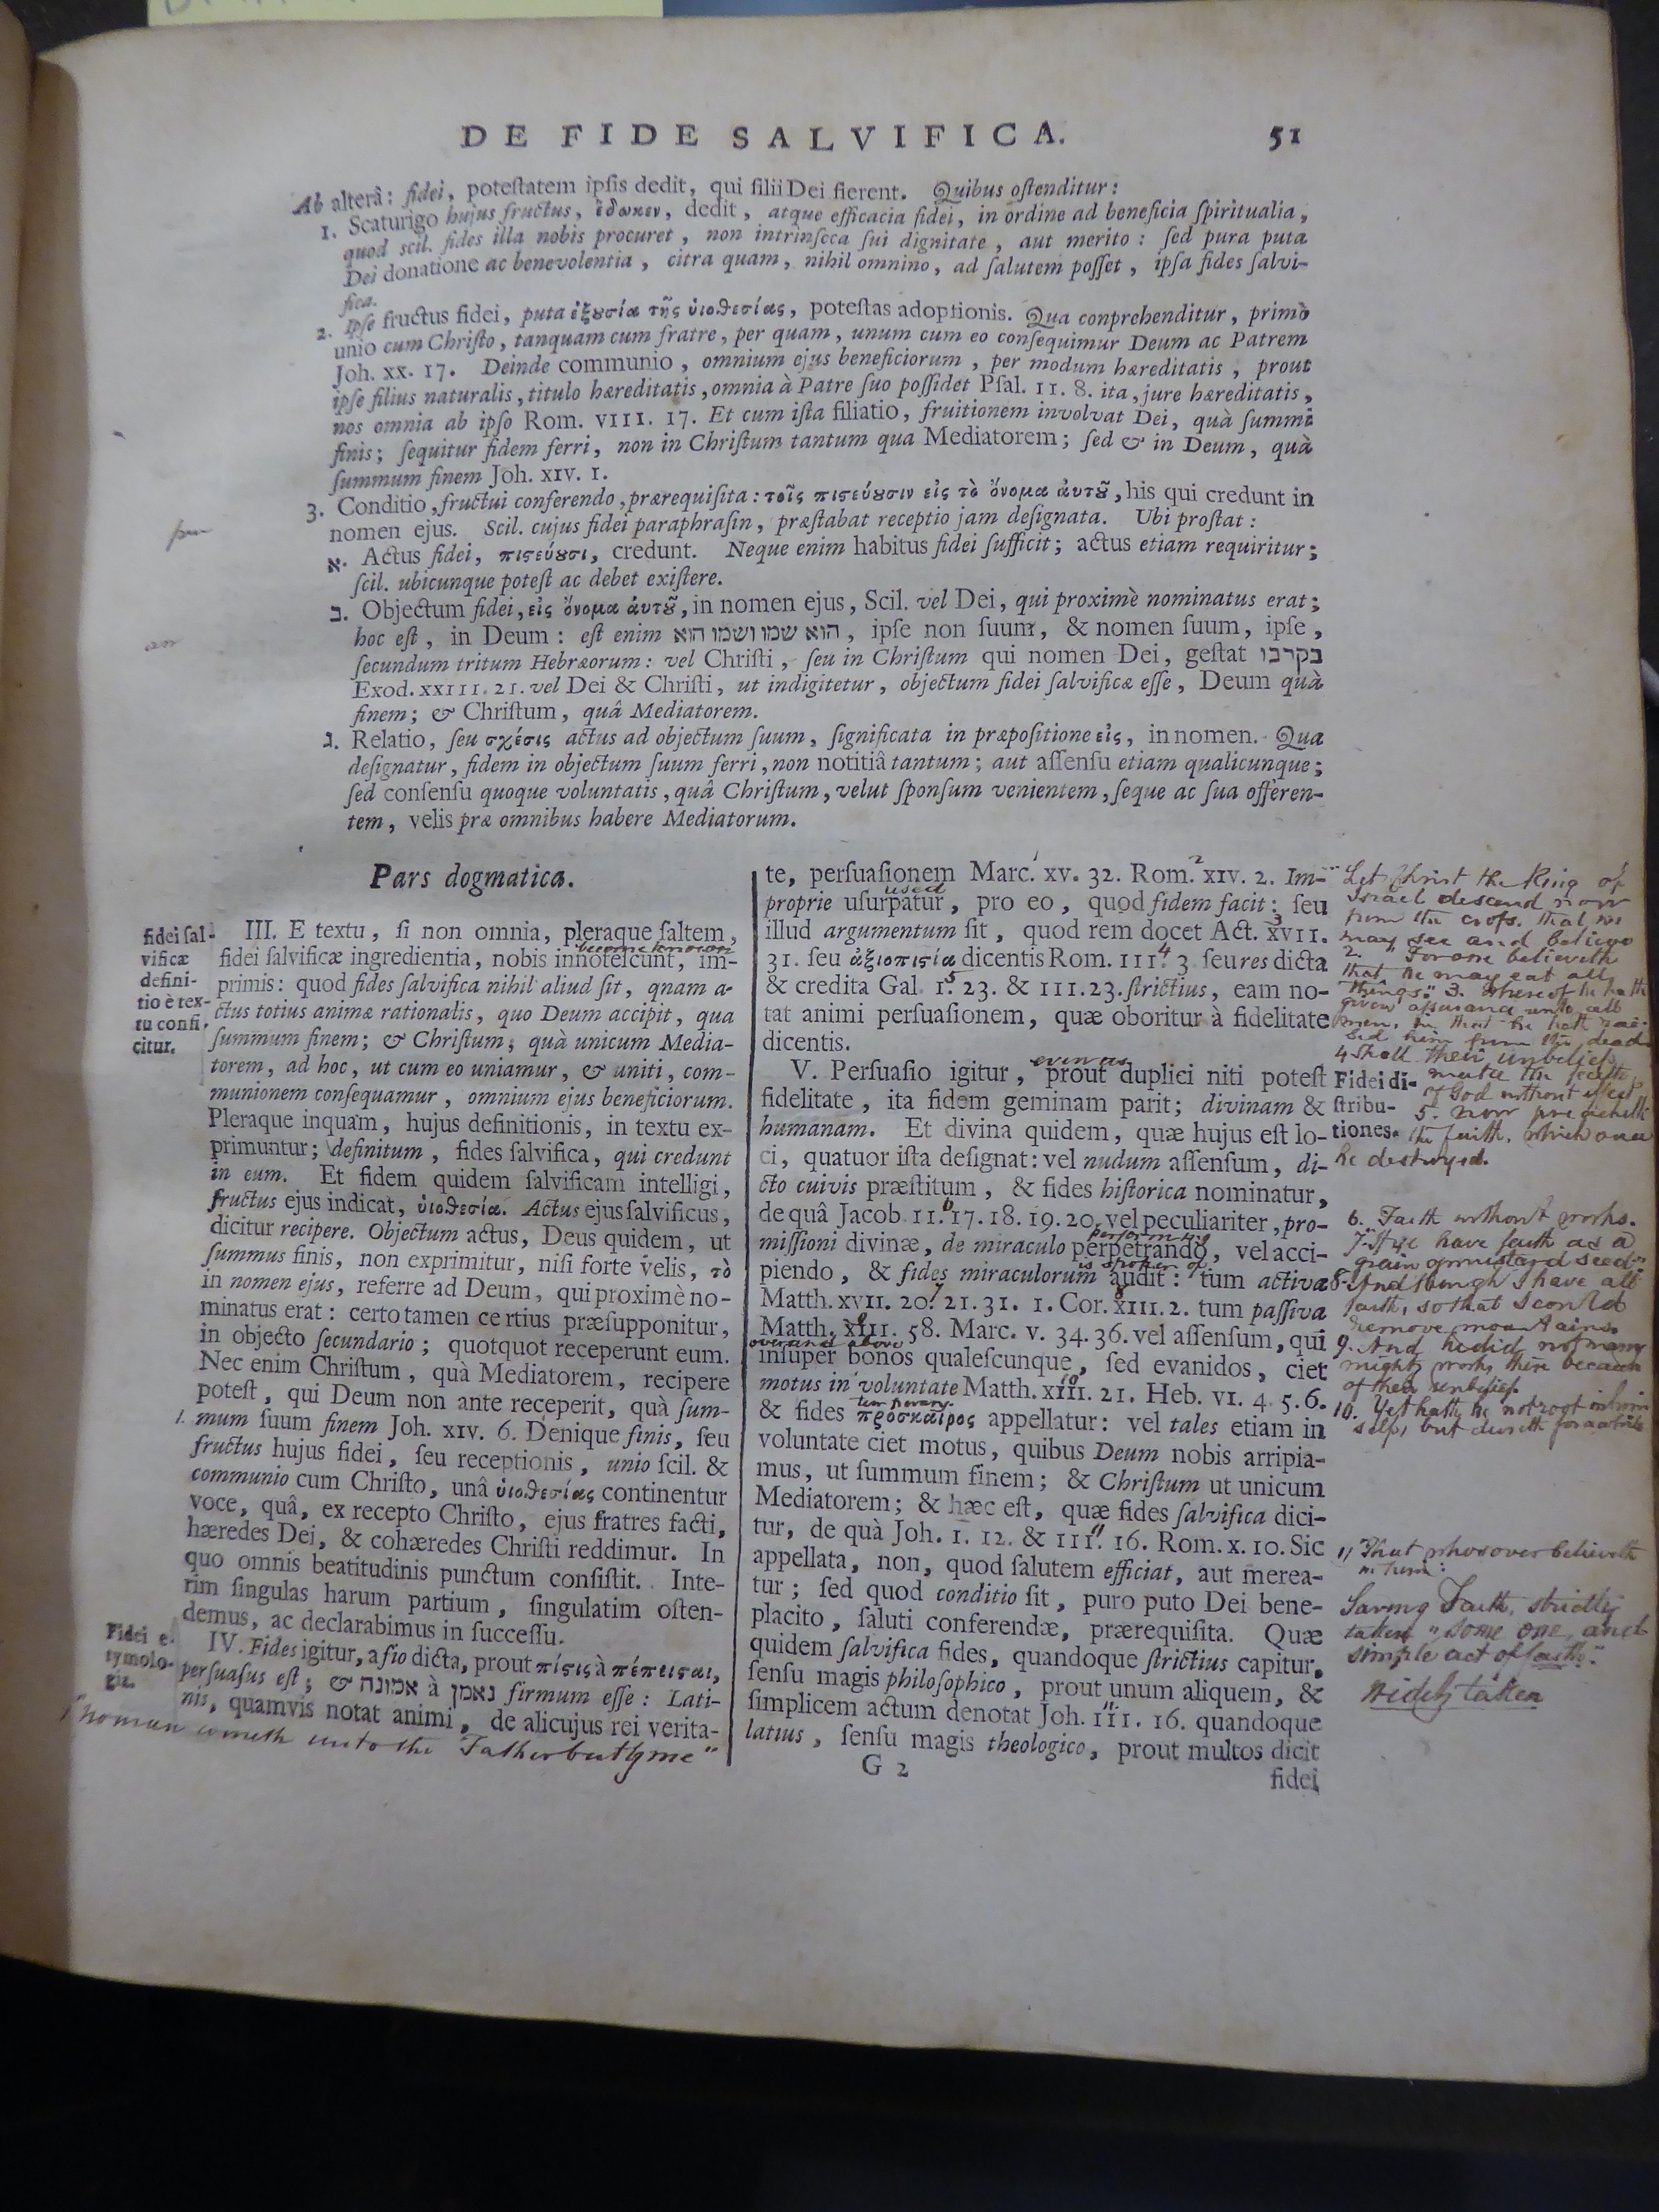 DE FIDE SALVIFICA. 51
Ab alterâ: fidei, poteſtatem ipſis dedit, qui filii Dei fierent. Quibus oſtenditur:
1. Scaturigo hujus fructus, ἔδωκεν, dedit, atque efficacia fidei, in ordine ad beneficia ſpiritualia,
quod scil. fides illa nobis procuret, non intrinſeca ſui dignitate, aut merito: ſed pura puta
Dei donatione ac benevolentia, citra quam, nihil omnino, ad ſalutem poſſet, ipſa fides ſalvi-
fica.
2. Ipſe fructus fidei, puta ἐξουσία τῆς ὑιοθεσίας, poteſtas adoptionis. Qua conprehenditur, primò
unio cum Chriſto, tanquam cum fratre, per quam, unum cum eo conſequimur Deum ac Patrem
Joh. xx. 17. Deinde communio, omnium ejus beneficiorum, per modum hæreditatis, prout
ipſe filius naturalis, titulo hæreditatis, omnia à Patre ſuo poſſidet Pſal. 11. 8. ita, jure hæreditatis,
nos omnia ab ipſo Rom. VIII. 17. Et cum iſta filiatio, fruitionem involvat Dei, quà ſummi
finis; ſequitur fidem ferri, non in Chriſtum tantum qua Mediatorem; ſed & in Deum, quà
ſummum finem Joh. XIV. 1.
3. Conditio, fructui conferendo, prærequiſita: τοῖς πιϛεύουσιν εἰς τὸ ὄνομα ἀυτοῦ, his qui credunt in
nomen ejus. Scil. cujus fidei paraphraſin, præſtabat receptio jam deſignata. Ubi proſtat:
א. Actus fidei, πιϛεύουσι, credunt. Neque enim habitus fidei ſufficit; actus etiam requiritur;
ſcil. ubicunque poteſt ac debet exiſtere.
ב. Objectum fidei, εἰς ὄνομα ἀυτοῦ, in nomen ejus, Scil. vel Dei, qui proximè nominatus erat;
hoc eſt, in Deum: eſt enim הוא שמו ושמו הוא, ipſe non ſuum, & nomen ſuum, ipſe,
ſecundum tritum Hebræorum: vel Chriſti, ſeu in Chriſtum qui nomen Dei, geſtat בקרבו
Exod. XXIII. 21. vel Dei & Chriſti, ut indigitetur, objectum fidei ſalvificæ eſſe, Deum quà
finem; & Chriſtum, quâ Mediatorem.
ג. Relatio, ſeu σχέσις actus ad objectum ſuum, ſignificata in præpoſitione εἰς, in nomen. Qua
deſignatur, fidem in objectum ſuum ferri, non notitiâ tantum; aut aſſenſu etiam qualicunque;
ſed conſenſu quoque voluntatis, quâ Chriſtum, velut ſponſum venientem, ſeque ac ſua offeren-
tem, velis præ omnibus habere Mediatorum.
Pars dogmatica.
fidei ſal-
vificæ
defini-
tio è tex-
tu confi-
citur.
III. E textu, ſi non omnia, pleraque ſaltem,
become known
fidei ſalvificæ ingredientia, nobis innoteſcunt, im-
primis: quod fides ſalvifica nihil aliud ſit, qnam a-
ctus totius animæ rationalis, quo Deum accipit, qua
ſummum finem; & Chriſtum, quà unicum Media-
torem, ad hoc, ut cum eo uniamur, & uniti, com-
munionem conſequamur, omnium ejus beneficiorum.
Pleraque inquam, hujus definitionis, in textu ex-
primuntur; definitum, fides ſalvifica, qui credunt
in eum. Et fidem quidem ſalvificam intelligi,
fructus ejus indicat, ὑιοθεσία. Actus ejus ſalvificus,
dicitur recipere. Objectum actus, Deus quidem, ut
ſummus finis, non exprimitur, niſi forte velis, τὸ
in nomen ejus, referre ad Deum, qui proximè no-
minatus erat: certo tamen certius præſupponitur,
in objecto ſecundario; quotquot receperunt eum.
Nec enim Chriſtum, quà Mediatorem, recipere
poteſt, qui Deum non ante receperit, quà ſum-
1. mum ſuum finem Joh. XIV. 6. Denique finis, ſeu
fructus hujus fidei, ſeu receptionis, unio ſcil. &
communio cum Chriſto, unâ ὑιοθεσίας continentur
voce, quâ, ex recepto Chriſto, ejus fratres facti,
hæredes Dei, & cohæredes Chriſti reddimur. In
quo omnis beatitudinis punctum conſiſtit. Inte-
rim ſingulas harum partium, ſingulatim oſten-
demus, ac declarabimus in ſucceſſu.
Fidei e-
tymolo-
gia.
IV. Fides igitur, a fio dicta, prout πίϛις à πέπεισαι,
perſuaſus eſt; & אמונה à נאמן firmum eſſe: Lati-
nis, quamvis notat animi, de alicujus rei verita-
1 "no man cometh unto the Father but by me"
te, perſuaſionem Marc. XV. 32. Rom. XIV. 2. Im-
used
proprie uſurpatur, pro eo, quod fidem facit: ſeu
illud argumentum ſit, quod rem docet Act. XVII.
31. ſeu ἀξιοπιϛία dicentis Rom. III. 3 ſeu res dicta
& credita Gal. 1. 23. & III. 23. ſtrictius, eam no-
tat animi perſuaſionem, quæ oboritur à fidelitate
dicentis.
even as
V. Perſuaſio igitur, prout duplici niti poteſt
fidelitate, ita fidem geminam parit; divinam &
humanam. Et divina quidem, quæ hujus eſt lo-
ci, quatuor iſta deſignat: vel nudum aſſenſum, di-
cto cuivis præſtitum, & fides hiſtorica nominatur,
de quâ Jacob. 11. 17. 18. 19. 20. vel peculiariter, pro-
performing
miſſioni divinæ, de miraculo perpetrando, vel acci-
is spoken of
piendo, & fides miraculorum audit: tum activa
Matth. XVII. 20. 21. 31. 1. Cor. XIII. 2. tum paſſiva
Matth. XIII. 58. Marc. V. 34. 36. vel aſſenſum, qui
over and above
inſuper bonos qualeſcunque, ſed evanidos, ciet
motus in voluntate Matth. XIII. 21. Heb. VI. 4. 5. 6.
temporary
& fides πρόσκαιρος appellatur: vel tales etiam in
voluntate ciet motus, quibus Deum nobis arripia-
mus, ut ſummum finem; & Chriſtum ut unicum
Mediatorem; & hæc eſt, quæ fides ſalvifica dici-
tur, de quà Joh. 1. 12. & III. 16. Rom. X. 10. Sic
appellata, non, quod ſalutem efficiat, aut merea-
tur; ſed quod conditio ſit, puro puto Dei bene-
placito, ſaluti conferendæ, prærequiſita. Quæ
quidem ſalvifica fides, quandoque ſtrictius capitur,
ſenſu magis philoſophico, prout unum aliquem, &
ſimplicem actum denotat Joh. III. 16. quandoque
latius, ſenſu magis theologico, prout multos dicit
G 2
fidei
Fidei di-
ſtribu-
tiones.
Let Christ the King of
Israel descend now
from the cross. that we
may see and believe
2. "For one believeth
that he may eat all
things." 3. Whereof he hath
given assurance unto all
men, in that he hath rai-
sed him from the dead.
4 Shall their unbelief
make the faith
of God without effect
5. now preacheth
the faith, which once
he destroyed.
6. Faith without works.
7. If ye have faith as a
grain of mustard seed"
8. And though I have all
faith, so that I could
remove mountains.
9. And he did not many
mighty works there because
of their unbelief.
10. Yet hath he not root in him
self, but dureth for a while
11 That whosoever believeth
in him:
Saving Faith, strictly
taken "some one, and
simple act of faith."
Widely taken